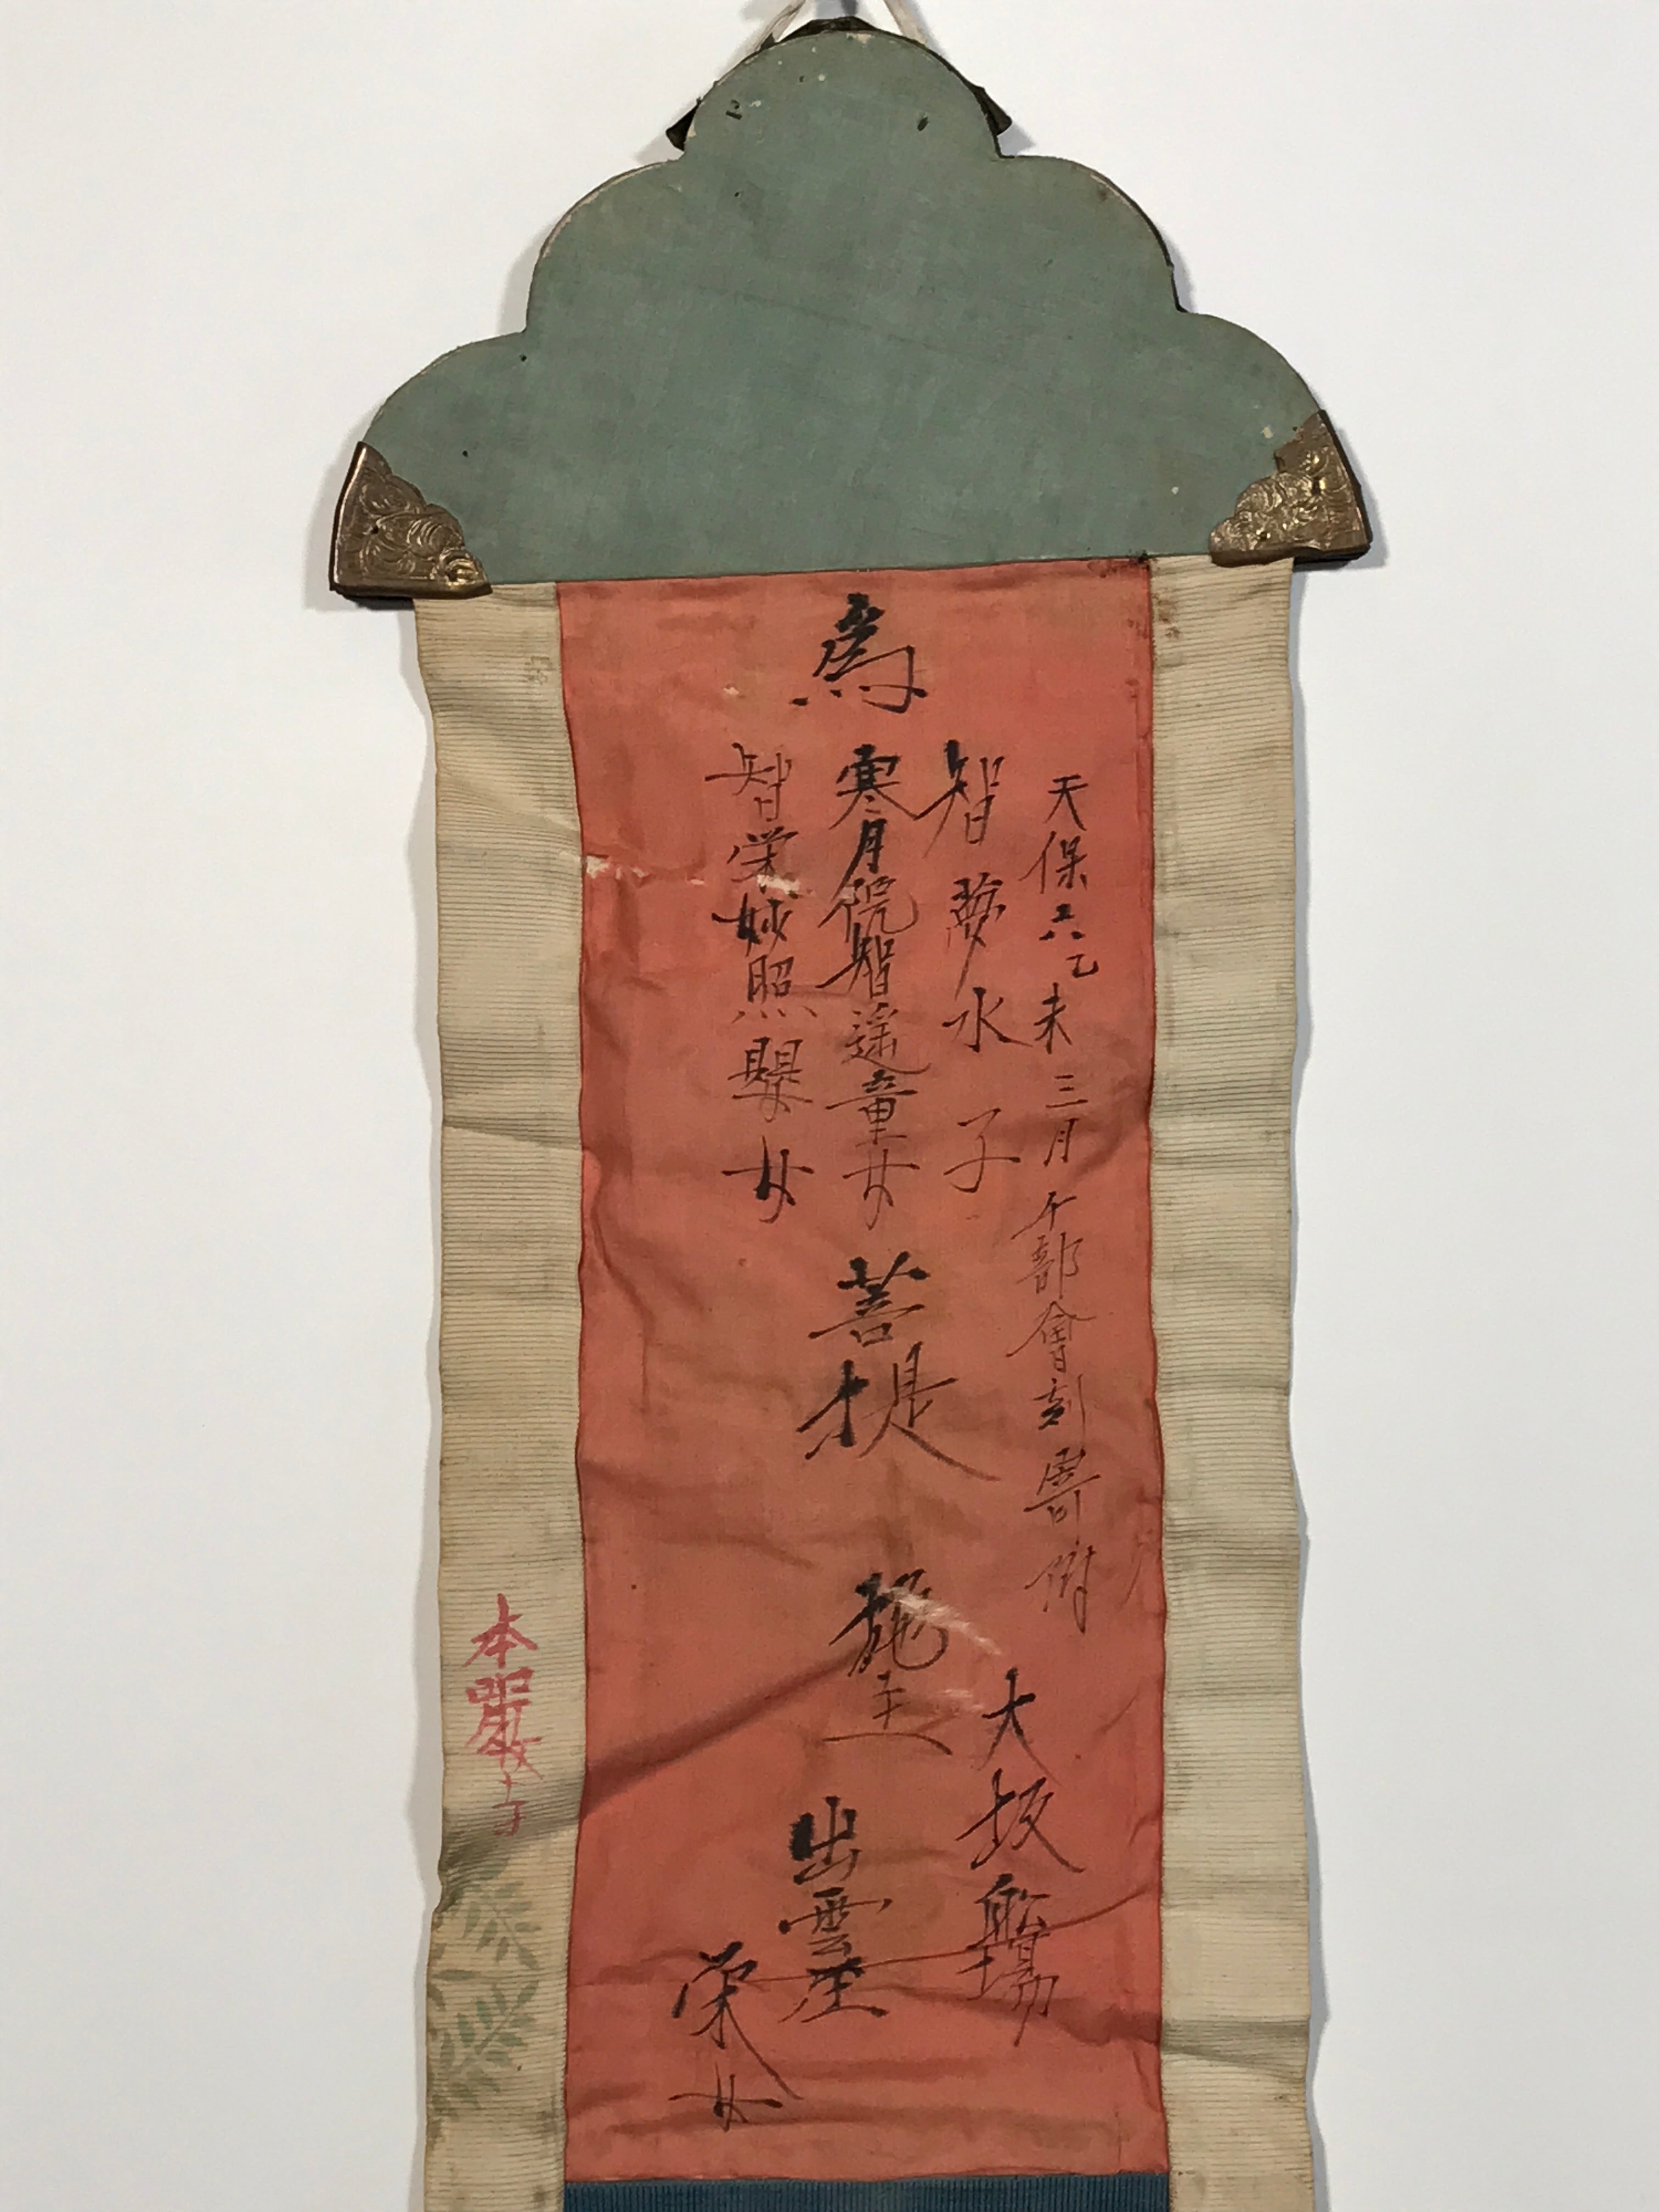 為
天保六乙未三月千部會刻寄附
智夢水子
寒月院智遊童女
智栄妙照嬰女
菩提
施主
大坂堀
出雲屋
栄女
本嚴寺